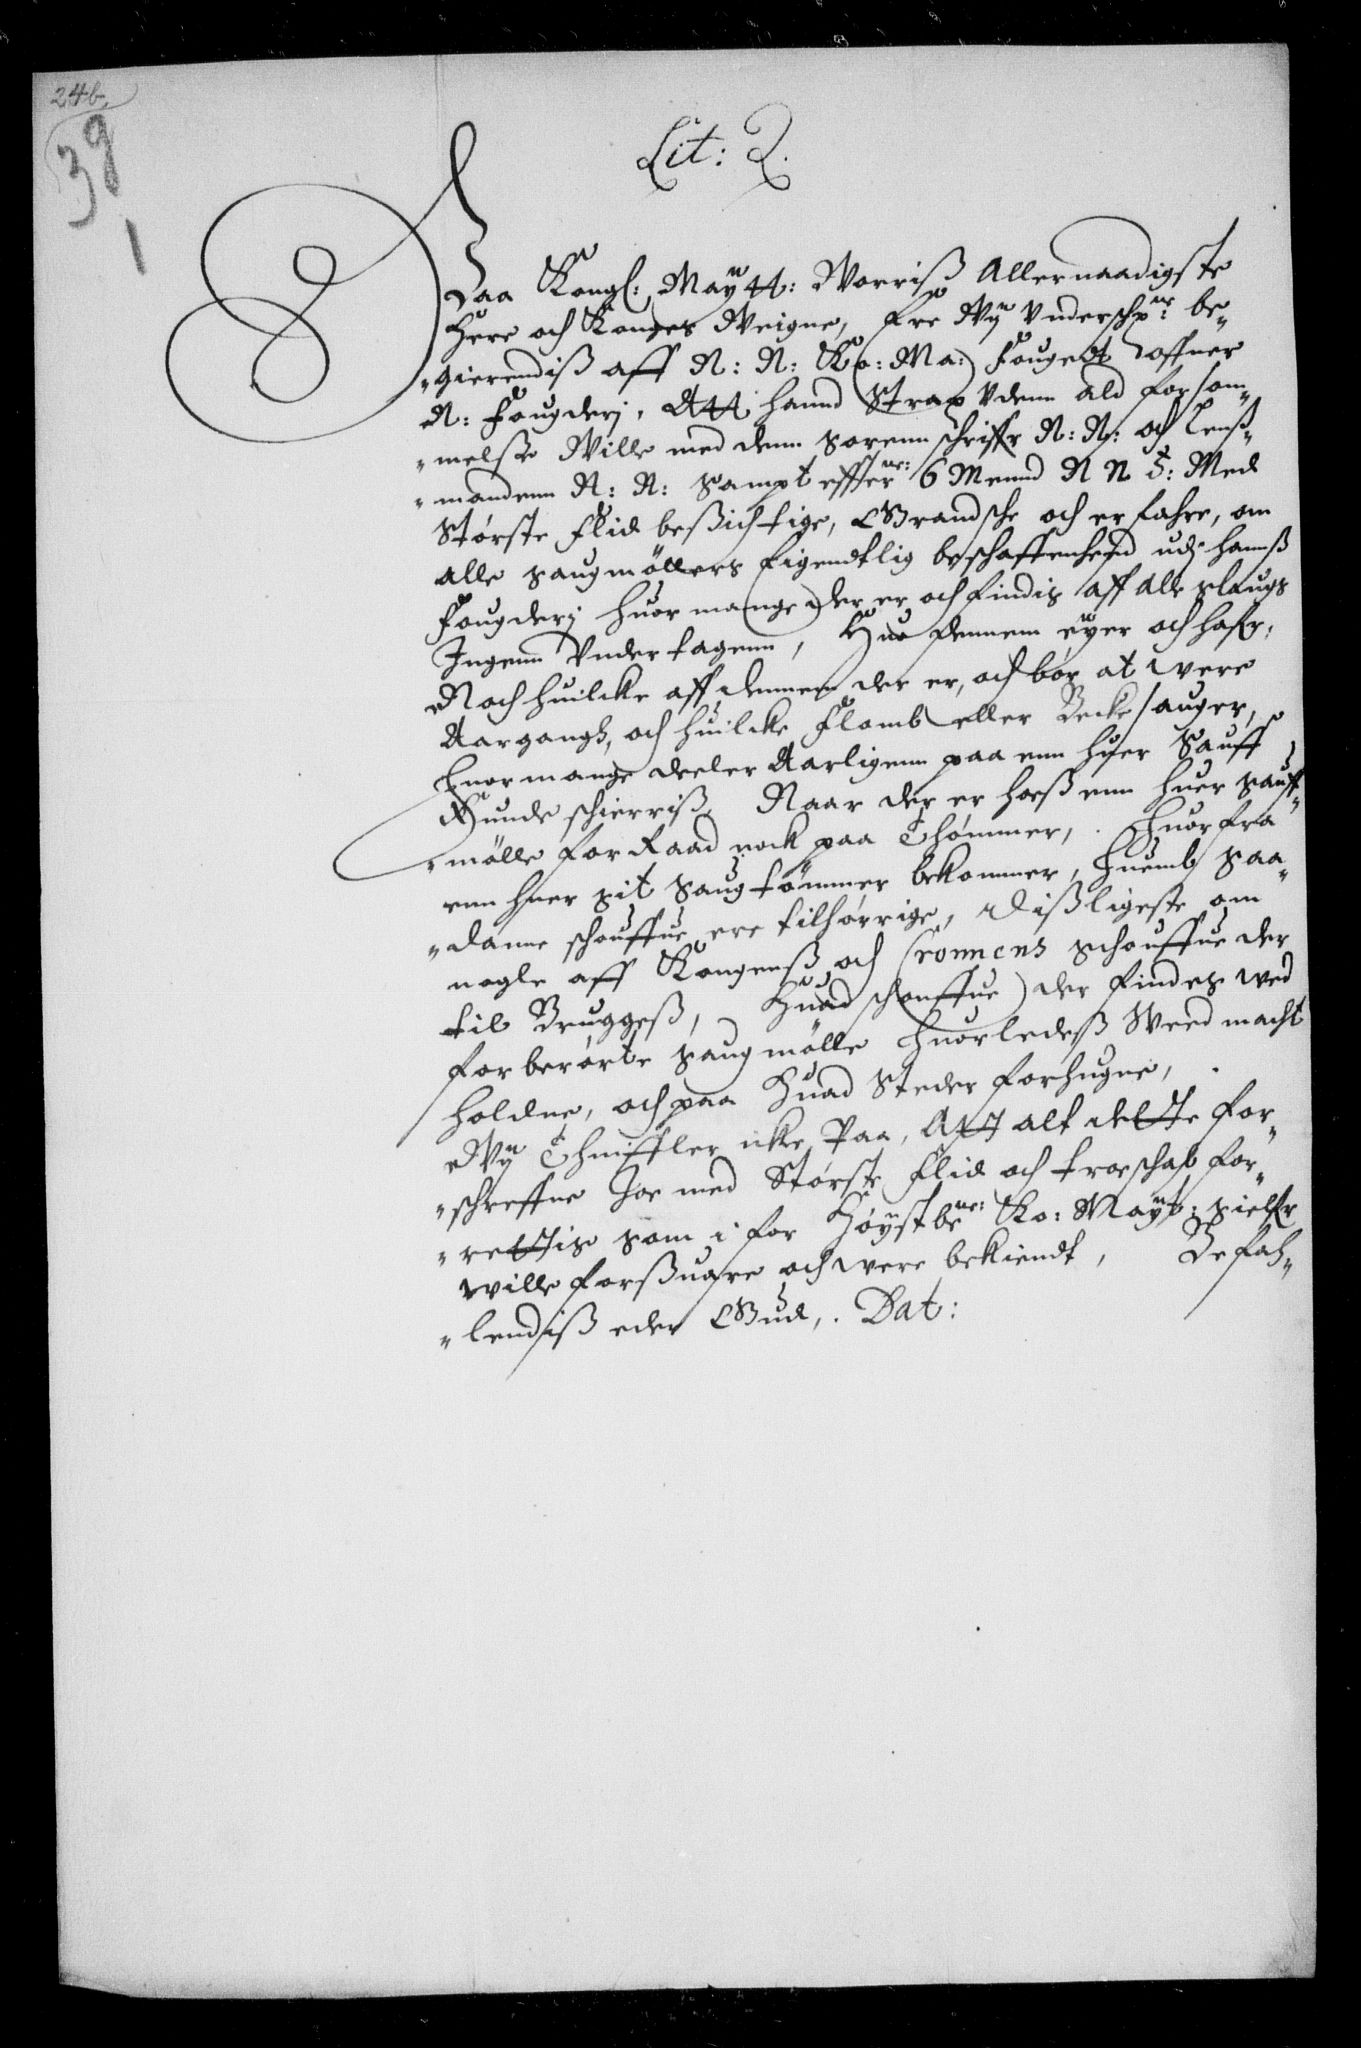 24b.
39
1
Lit: Q.
Paa Kongl: Maytt: Worriß Allernaadigste
Herre och Konges Weigne, Ere Wy Underschr: be„
„gierendiß aff N: N: Ko: Ma: Fougedt offuer
N: Fougderj, Att hannd Strax Udenn ald forsom„
„melße Wille med denn sorenn schriffr N: N: och Lenß„
„mandenn N: N: Sampt effter: 6 Mennd N N &: Med
Største Flid beßichtige, Grandsche och erfahre, om
alle Saugmøllers Eigendtlig beschaffenhed udj hannß
Fougderj huor mange der er och findis aff alle slaugs
Ingenn Undertagenn, Huo dennem eyer och hafr,
Noch huilcke aff dennem der er, och bør at were
Aargangs, och huilcke Flomb eller Beckesauger,
Huor mange deeler Aarligenn paa enn huer Sauff
Kunde schierriß, Naar der er hoeß enn huer Sauff„
„mølle forRaad nock paa Thømmer, Huorfra
enn huer sit Saugtømmer bekommer, Huemb saa„
„danne schouffue ere tilhørrige, Dißligeste om
nogle aff Kongenß och Cronnens schouffue der
til Bruggeß, Huad schouffue der findes wed
forberørte Saugmølle Huorledeß Weed macht
holdne, och paa Huad Steder forhugne,
Wy Thuiffler icke Paa, Att alt dette for„
„schreffne Joe med Største Flid och troschab for„
„rettis som i for Høystbe: Ko: Mayt: sielfr
wille forßuare och were bekiendt, Befah„
„lendiß eder Gud, Dat: